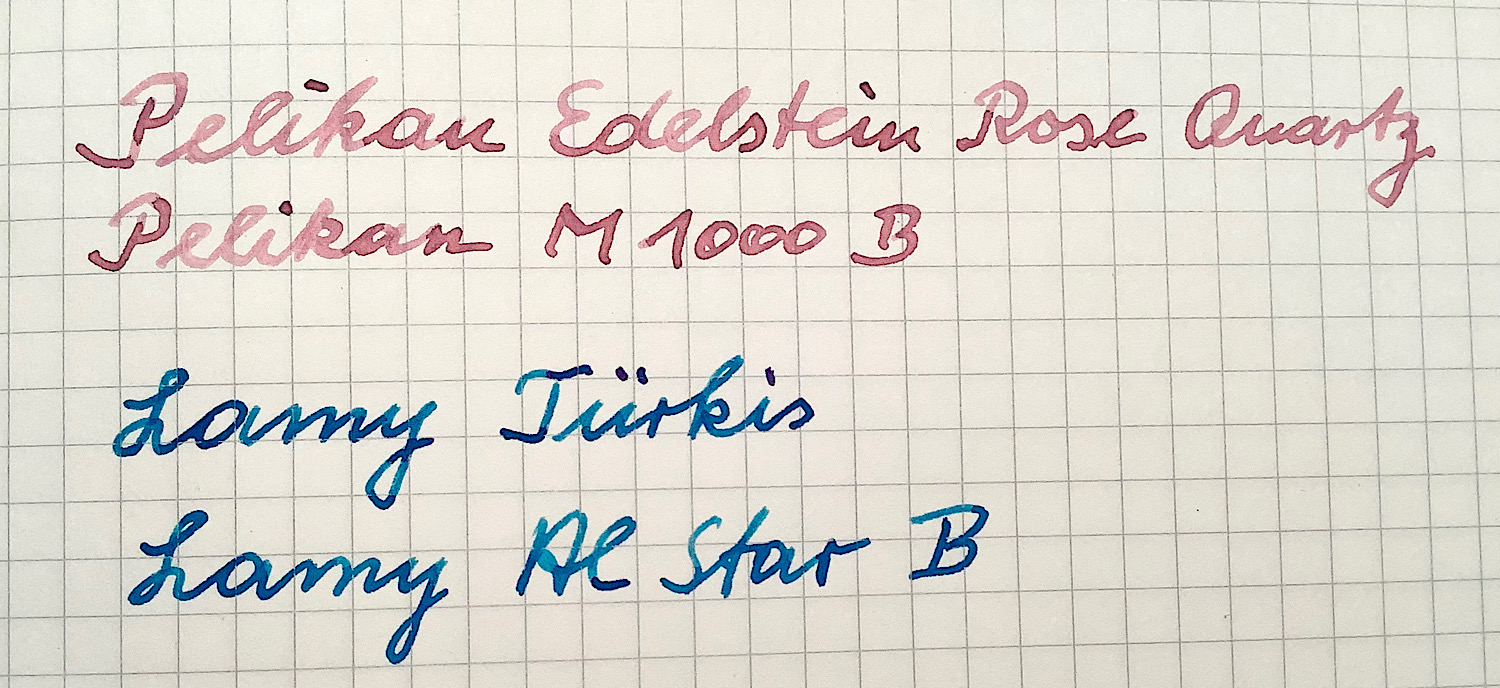 Pelikan Edelstein Rose Quartz
Pelikan M 1000 B
Lamy Türkis
Lamy Al Star B